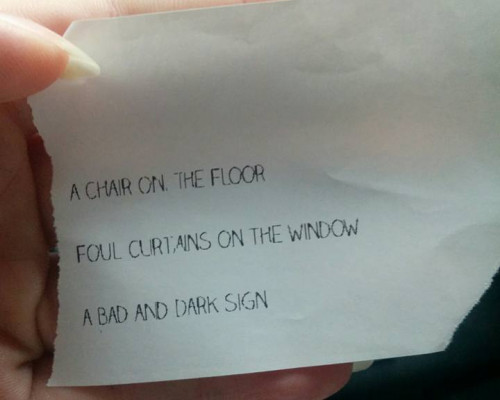 A CHAIR ON. THE FLOOR
FOUL CURTAINS ON THE WINDOW
A BAD AND DARK SIGN